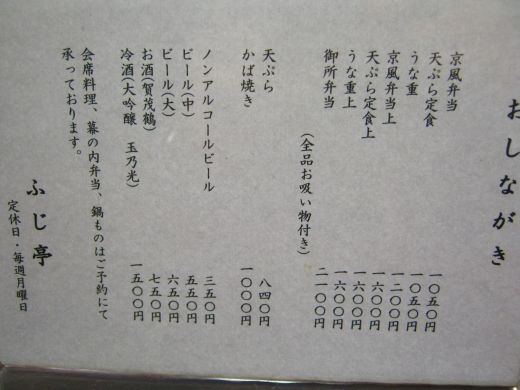 おしながき
京風弁当 一〇五〇円
天ぷら定食 一〇五〇円
うな重 一二〇〇円
京風弁当上 一六〇〇円
天ぷら定食上 一六〇〇円
うな重上 一六〇〇円
御所弁当 二一〇〇円
(全品お吸い物付き)
天ぷら 八四〇円
かば焼き 一〇〇〇円
ノンアルコールビール 三五〇円
ビール(中) 五五〇円
ビール(大) 六五〇円
お酒(賀茂鶴) 七五〇円
冷酒(大吟醸 玉乃光) 一五〇〇円
会席料理、幕の内弁当、鍋ものはご予約にて
承っております。
ふじ亭
定休日・毎週月曜日